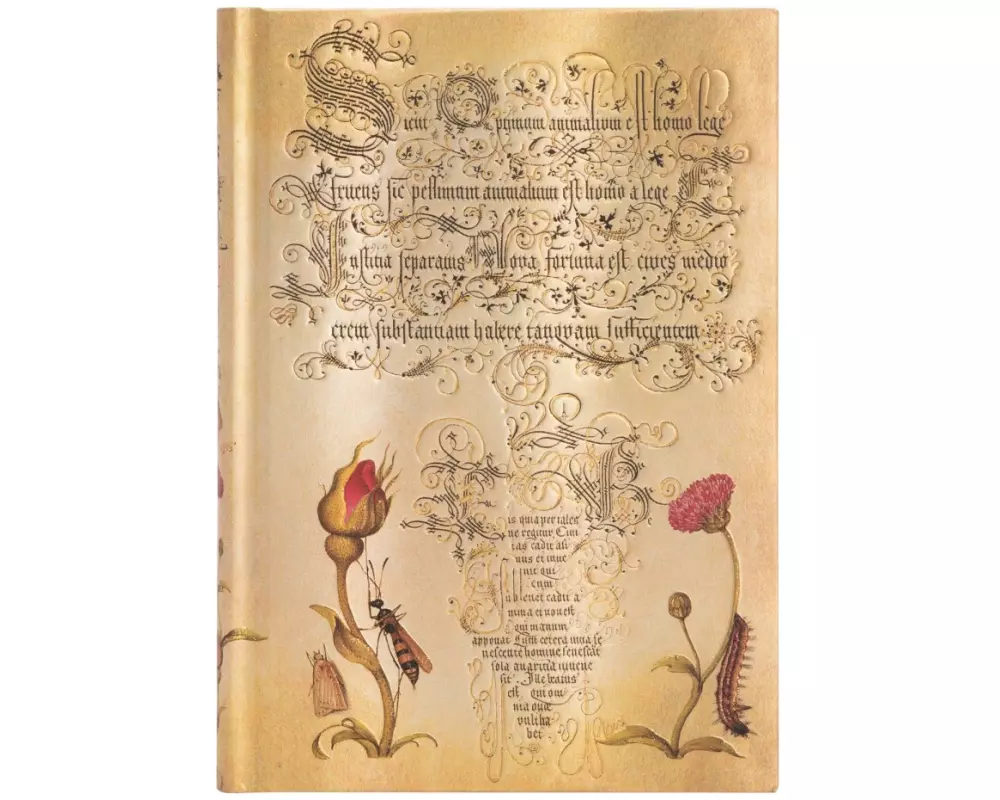 Sicut Optimum animalium est homo lege
fruens sic pessimum animalium est homo a lege E
Iustitia separatus Nova fortuna est cives medio
crem substantiam habere tanquam sufficientem
His quia per tales
ne regitur Civi
tas cadit asi
nus et inve
nit qui
eum
sublevet cadit a
nima et non est
qui manum
apponat Cum cetera vitia se
nescente homine senescat
sola avaritia iuvene
sit. Ille beatus
est qui om
nia quae
vult ha
bet.